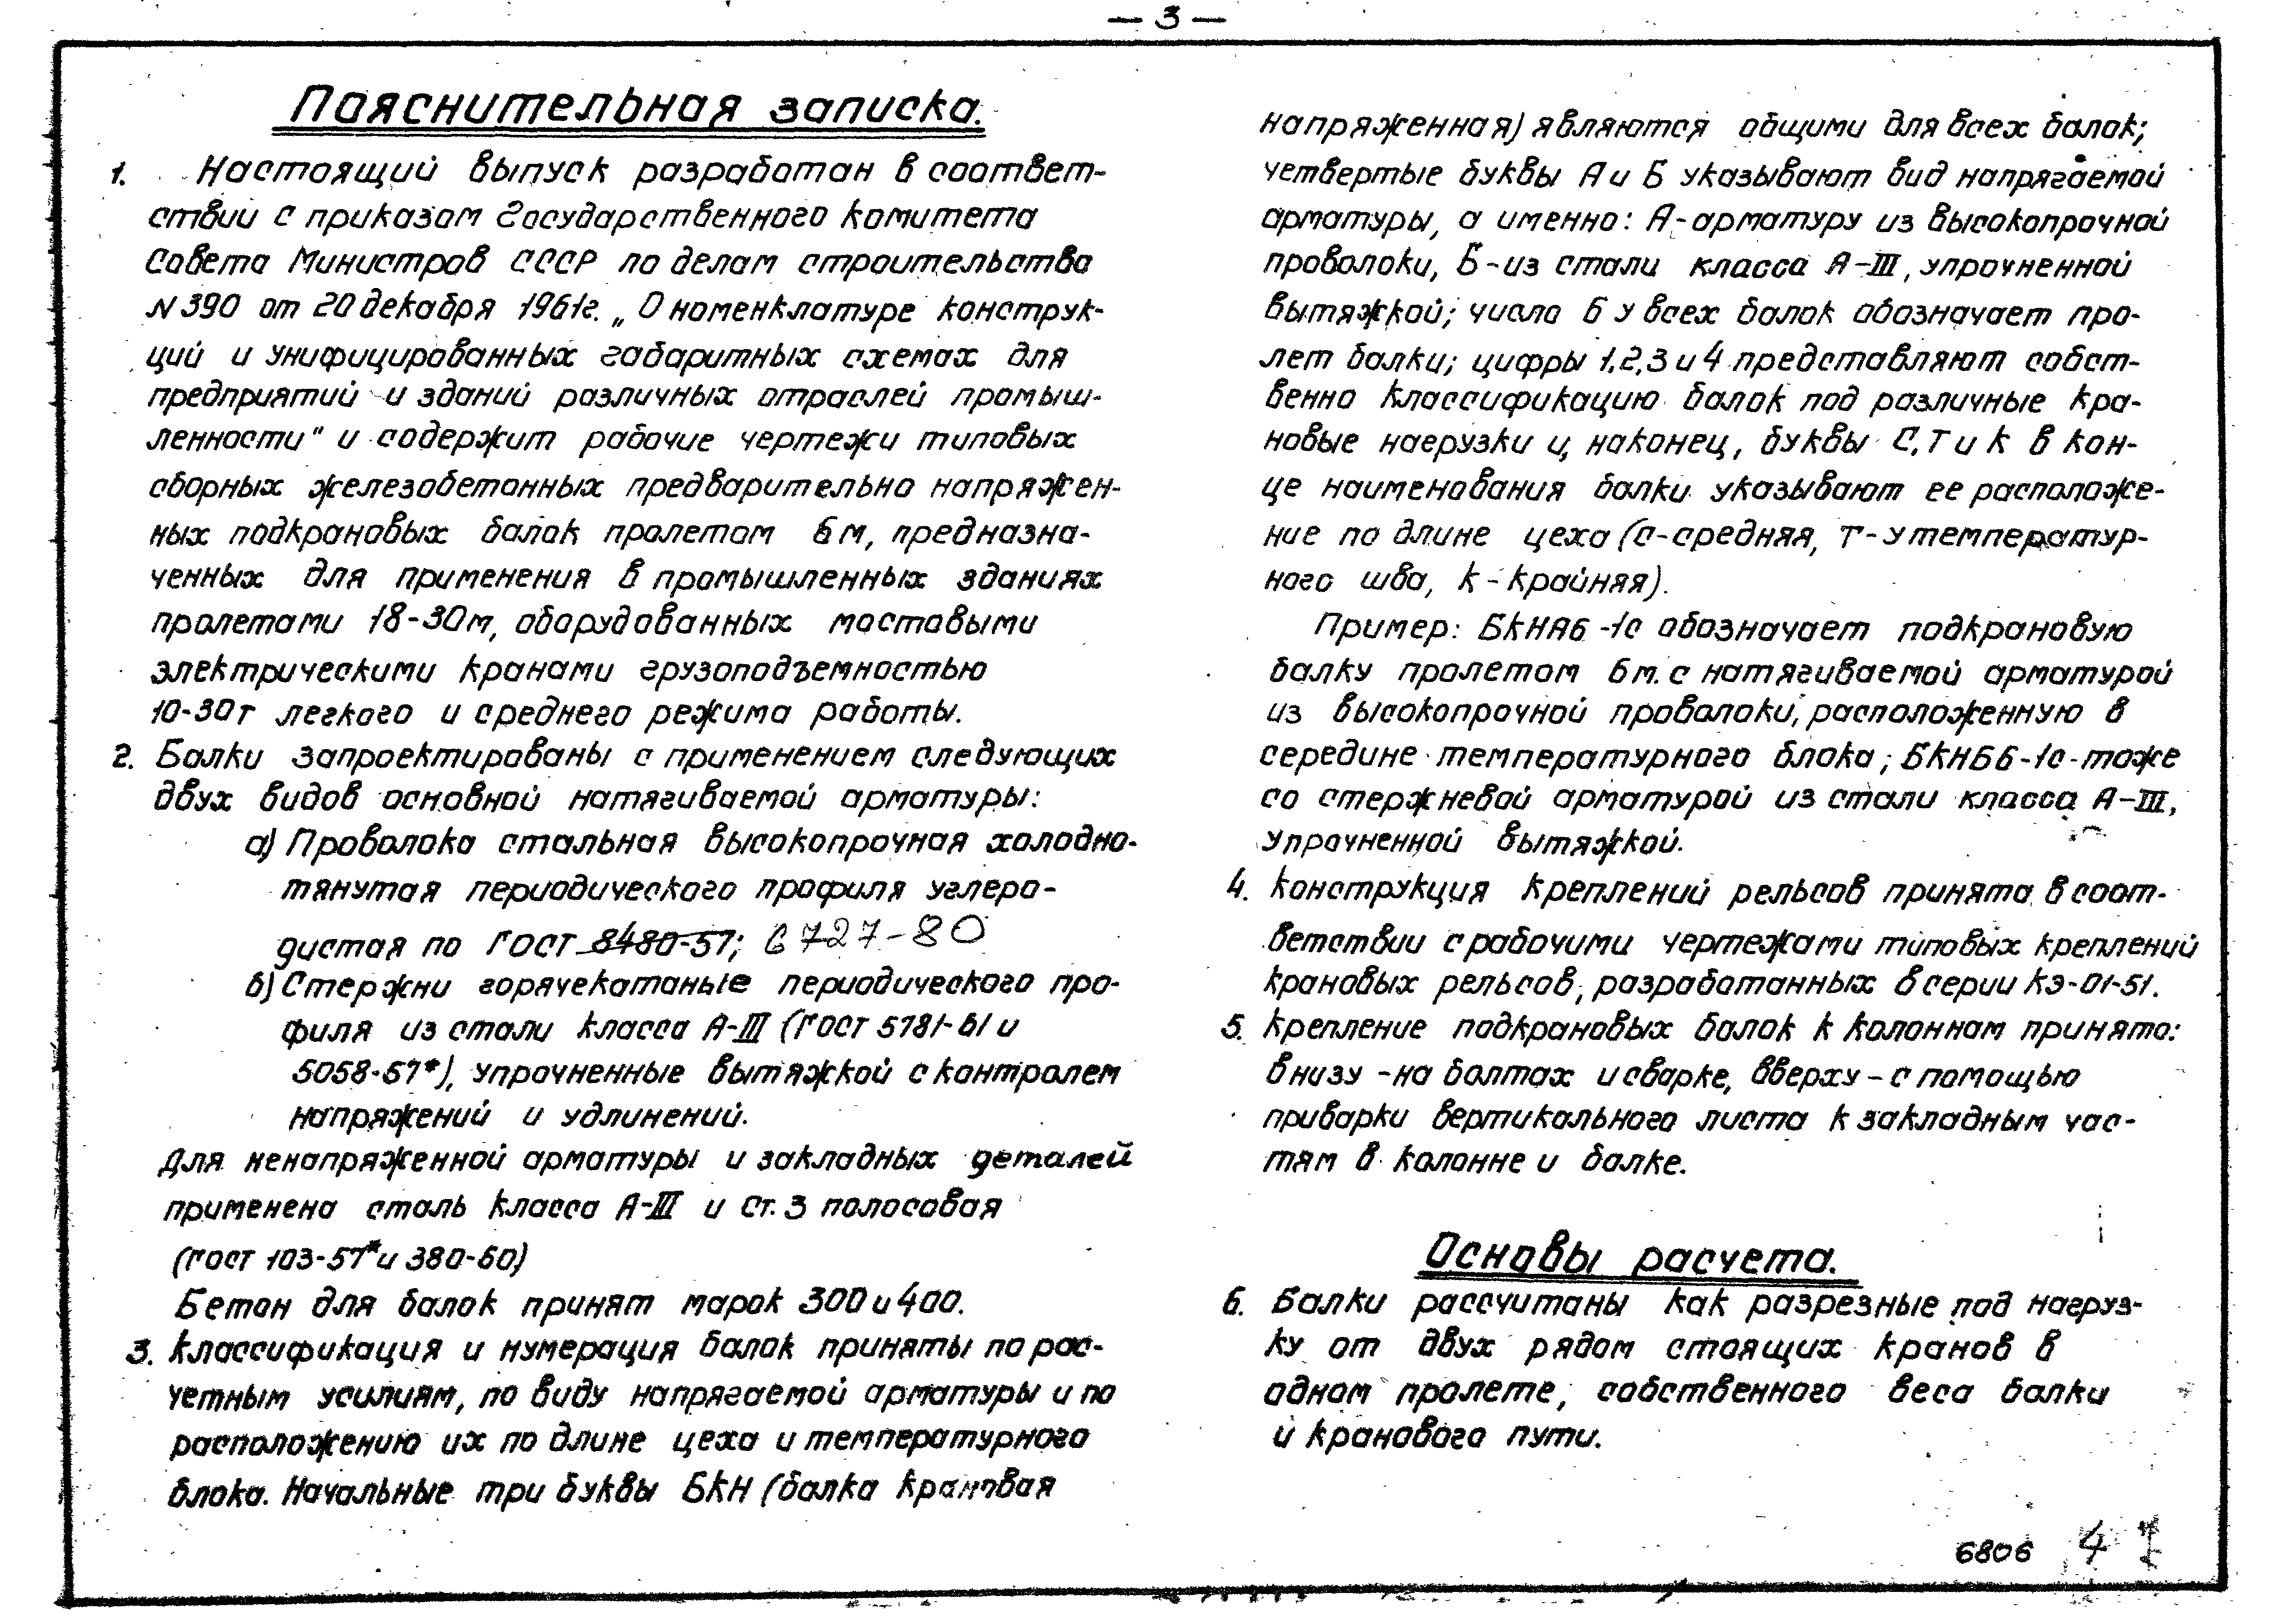 — 3 —
Пояснительная записка.
1. Настоящий выпуск разработан в соответ-
ствии с приказом Государственного комитета
Совета Министров СССР по делам строительства
N 390 от 20 декабря 1961г. „О номенклатуре конструк-
ций и унифицированных габаритных схемах для
предприятий и зданий различных отраслей промыш-
ленности" и содержит рабочие чертежи типовых
сборных железобетонных предварительно напряжен-
ных подкрановых балок пролетом 6 м, предназна-
ченных для применения в промышленных зданиях
пролетами 18-30м, оборудованных мостовыми
электрическими кранами грузоподъемностью
10-30т легкого и среднего режима работы.
2. Балки запроектированы с применением следующих
двух видов основной натягиваемой арматуры:
а) Проволока стальная высокопрочная холодно-
тянутая периодического профиля углеро-
дистая по ГОСТ 8480-57; 6727-80
б) Стержни горячекатаные периодического про-
филя из стали класса А-III (ГОСТ 5781-61 и
5058-57*), упрочненные вытяжкой с контролем
напряжений и удлинений.
Для ненапряженной арматуры и закладных деталей
применена сталь класса А-III и Ст. 3 полосовая
(ГОСТ 103-57* и 380-60)
Бетон для балок принят марок 300 и 400.
3. Классификация и нумерация балок приняты по рас-
четным усилиям, по виду напрягаемой арматуры и по
расположению их по длине цеха и температурного
блока. Начальные три буквы БКН (балка крановая
напряженная) являются общими для всех балок;
четвертые буквы А и Б указывают вид напрягаемой
арматуры, а именно: А-арматуру из высокопрочной
проволоки, Б-из стали класса А-III, упрочненной
вытяжкой; число 6 у всех балок обозначает про-
лет балки; цифры 1,2,3 и 4 представляют собст-
венно классификацию балок под различные кра-
новые нагрузки и, наконец, буквы С, Т и К в кон-
це наименования балки указывают ее расположе-
ние по длине цеха (С-средняя, Т-у температур-
ного шва, К-крайняя).
Пример: БКНА6-1с обозначает подкрановую
балку пролетом 6м. с натягиваемой арматурой
из высокопрочной проволоки, расположенную в
середине температурного блока; БКНБ6-1с-тоже
со стержневой арматурой из стали класса А-III,
упрочненной вытяжкой.
4. Конструкция креплений рельсов принята в соот-
ветствии с рабочими чертежами типовых креплений
крановых рельсов, разработанных в серии КЭ-01-51.
5. Крепление подкрановых балок к колоннам принято:
внизу -на болтах и сварке, вверху - с помощью
приварки вертикального листа к закладным час-
тям в колонне и балке.
Основы расчета.
6. Балки рассчитаны как разрезные под нагруз-
ку от двух рядом стоящих кранов в
одном пролете, собственного веса балки
и кранового пути.
6806 4